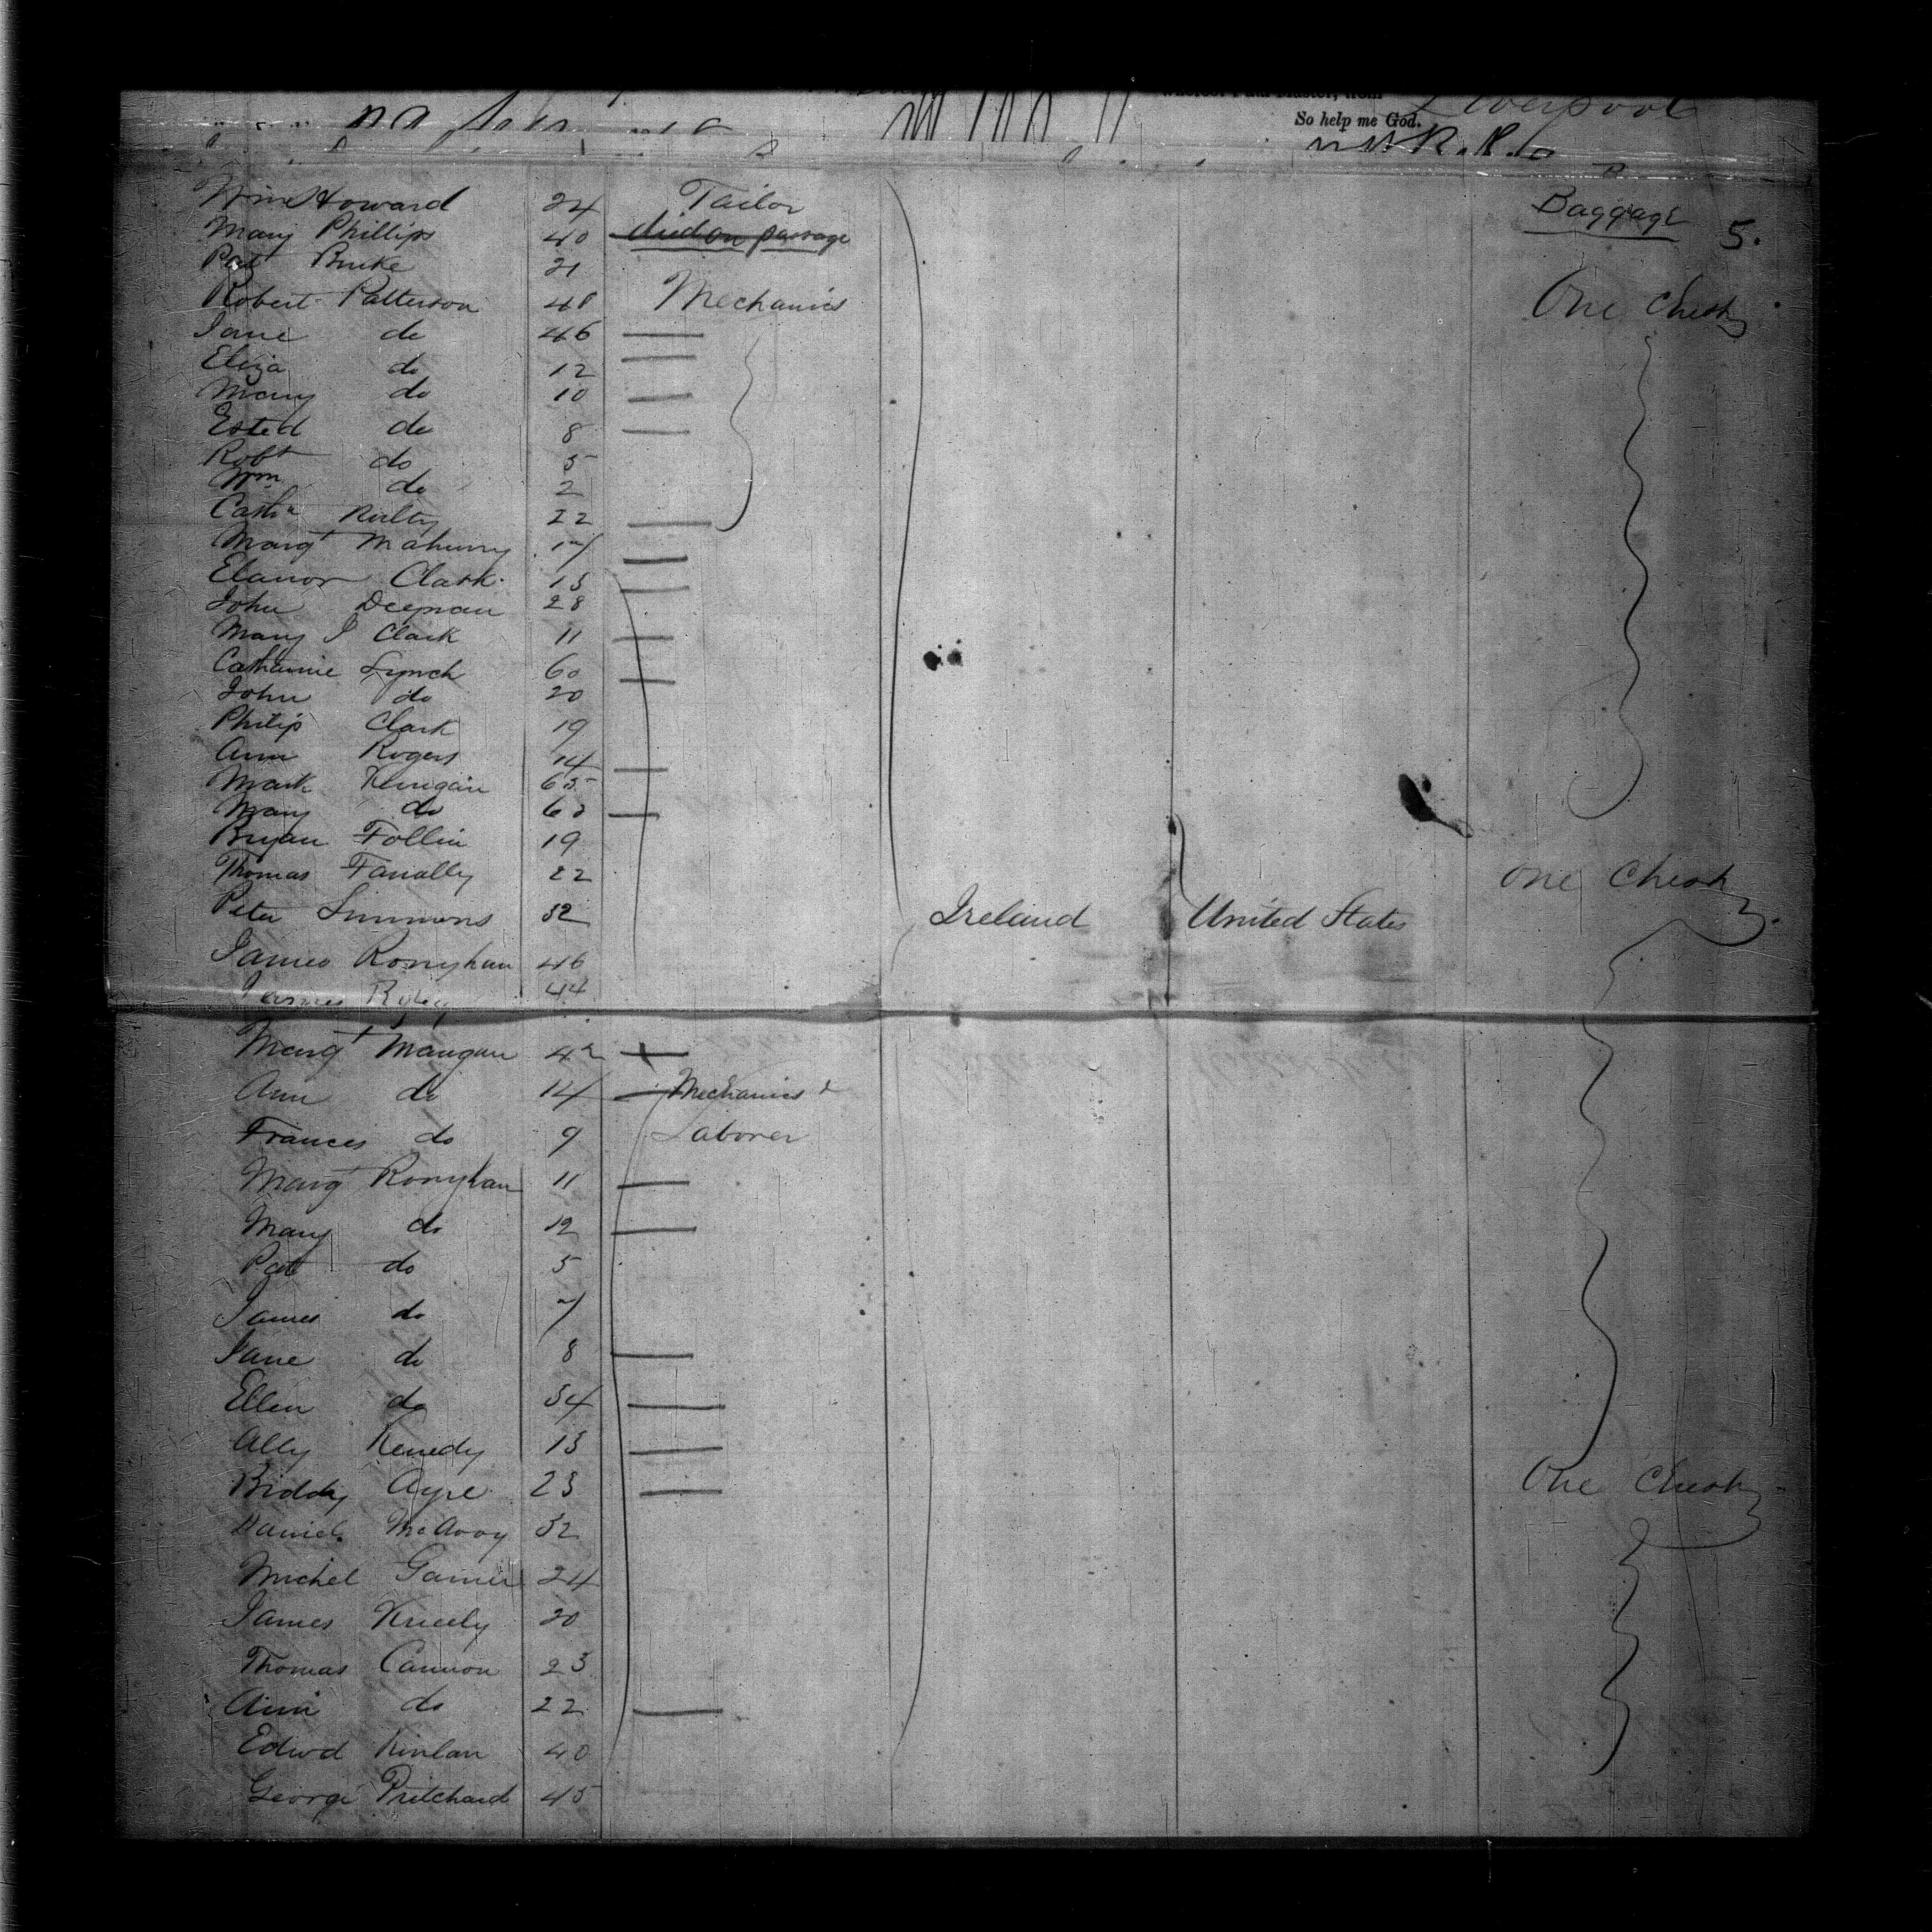 Liverpool
So help me God.
Wm Howard 24 Tailor
Baggage 5.
Mary Phillips 40 died on passage
Pat Burke 21
Robert Patterson 48 Mechanics One Chest
Jane do 46
Eliza do 12
Mary do 10
do 8
Robt do 5
Wm do 2
22
Margt 17
Elanor Clark 13
John 28
Mary J Clark 11
Catharine Lynch 60
John do 20
Philip Clark 19
Ann Rogers 14
Mark 65
Mary do 60
Bryan Follin 19
Thomas Fanally 22 One Chest
Peter Simmons 32 Ireland United States
James Ronyhan 46
James Riley 44
Margt Mangan 42
Ann do 14 Mechanics &
Frances do 9 Laborer
Margt Ronyhan 11
Mary do 12
Pat do 5
James do 7
Jane do 8
Ellen do 34
Ally Kenedy 13
Biddy Ayre 23 One Chest
Daniel McAvoy 32
Michel 24
James 20
Thomas Cannon 23
Ann do 22
Edwd Kinlan 40
George Pritchard 45